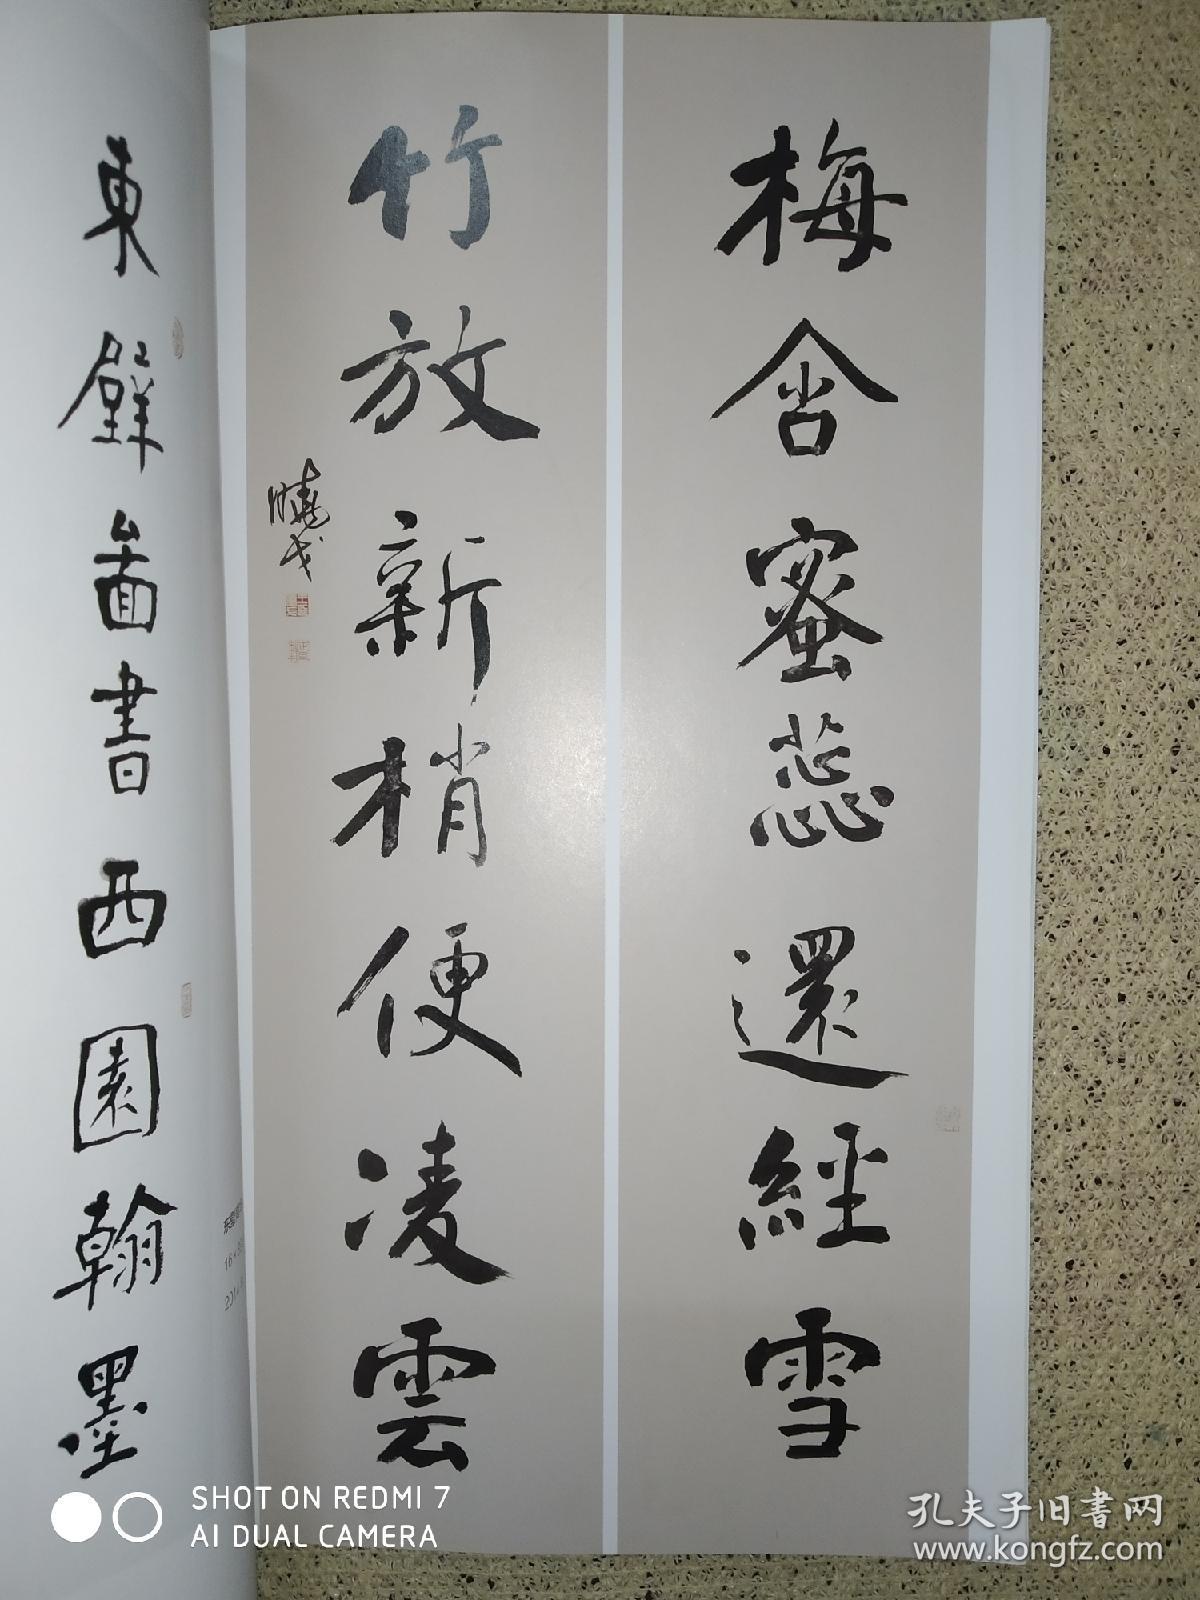 梅含蜜蕊還經雪
竹放新梢便凌雲
曉戈
東壁圖書西園翰墨
SHOT ON REDMI 7
AI DUAL CAMERA
孔夫子旧书网
www.kongfz.com